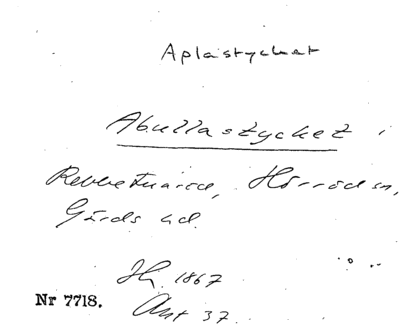 Aplastycket
Abullastycket i
Rebbetuaröd, Hörröds sn,
Gärds hd.
Hy. 1867
Nr 7718.
Akt 37.